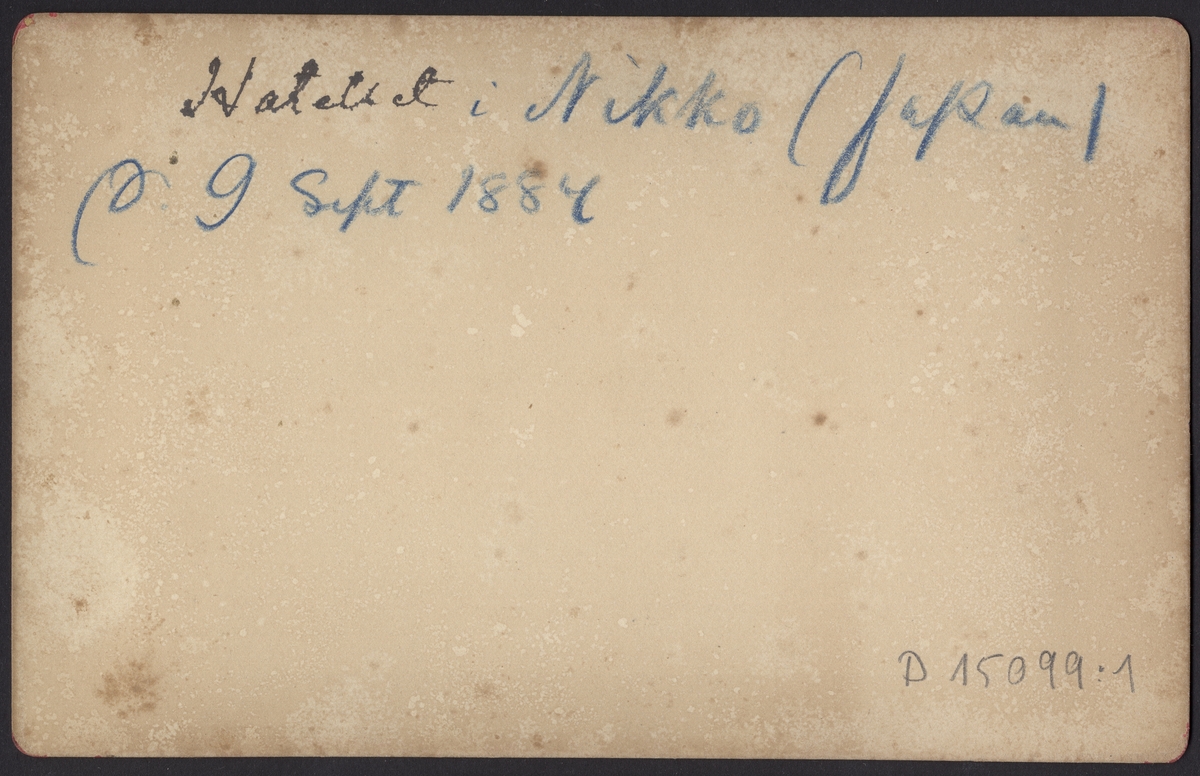 Hotellet i Nikko (Japan)
(d. 9 Sept 1884
D 15099:1